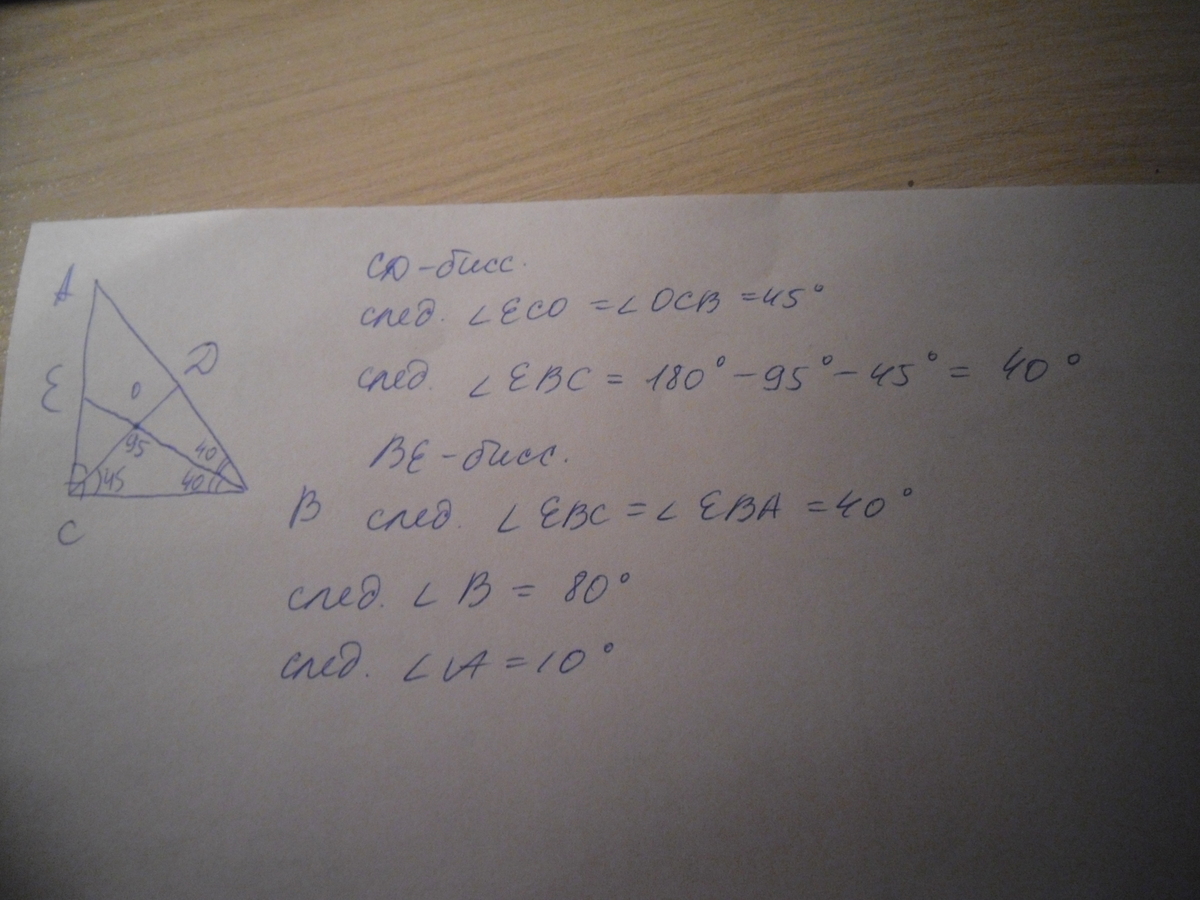 A
E
O
D
95
40
45
40
C
B
CD-бисс.
след. ∠ECO = ∠OCB = 45°
след. ∠EBC = 180° - 95° - 45° = 40°
BE-бисс.
след. ∠EBC = ∠EBA = 40°
след. ∠B = 80°
след. ∠A = 10°